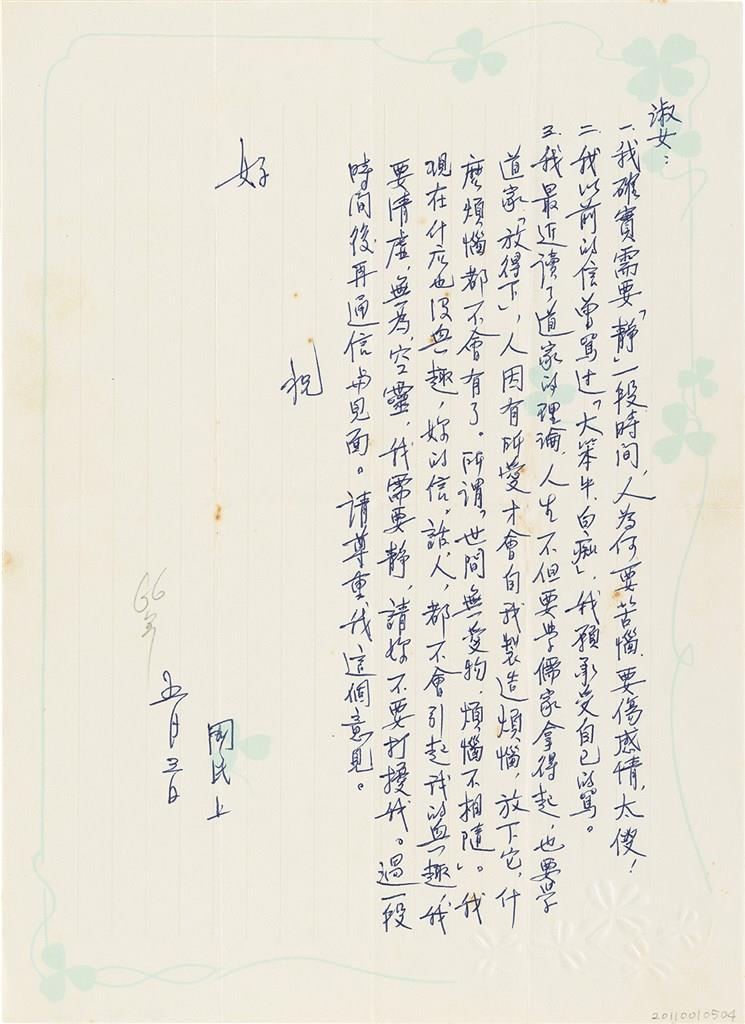 淑女：
一.我確實需要「靜」一段時間，人為何要苦惱，要傷感情，太傻！
二.我以前的信曾罵过「大笨牛、白痴」，我願承受自己的罵。
三.我最近讀了道家的理論，人生不但要學儒家拿得起，也要學
道家「放得下」，人因有所愛才會自我製造煩惱，放下它，什
麽煩惱都不會有了。所謂「世間無愛物，煩惱不相隨」。我
現在什么也没興趣，妳的信、話、人，都不會引起我的興趣，我
要清虛，無為，空靈，我需要靜，請妳不要打擾我。過一段
時间後再通信与見面。請尊重我這個意見。
祝
好
國民上
五月三日
66年
20110010504